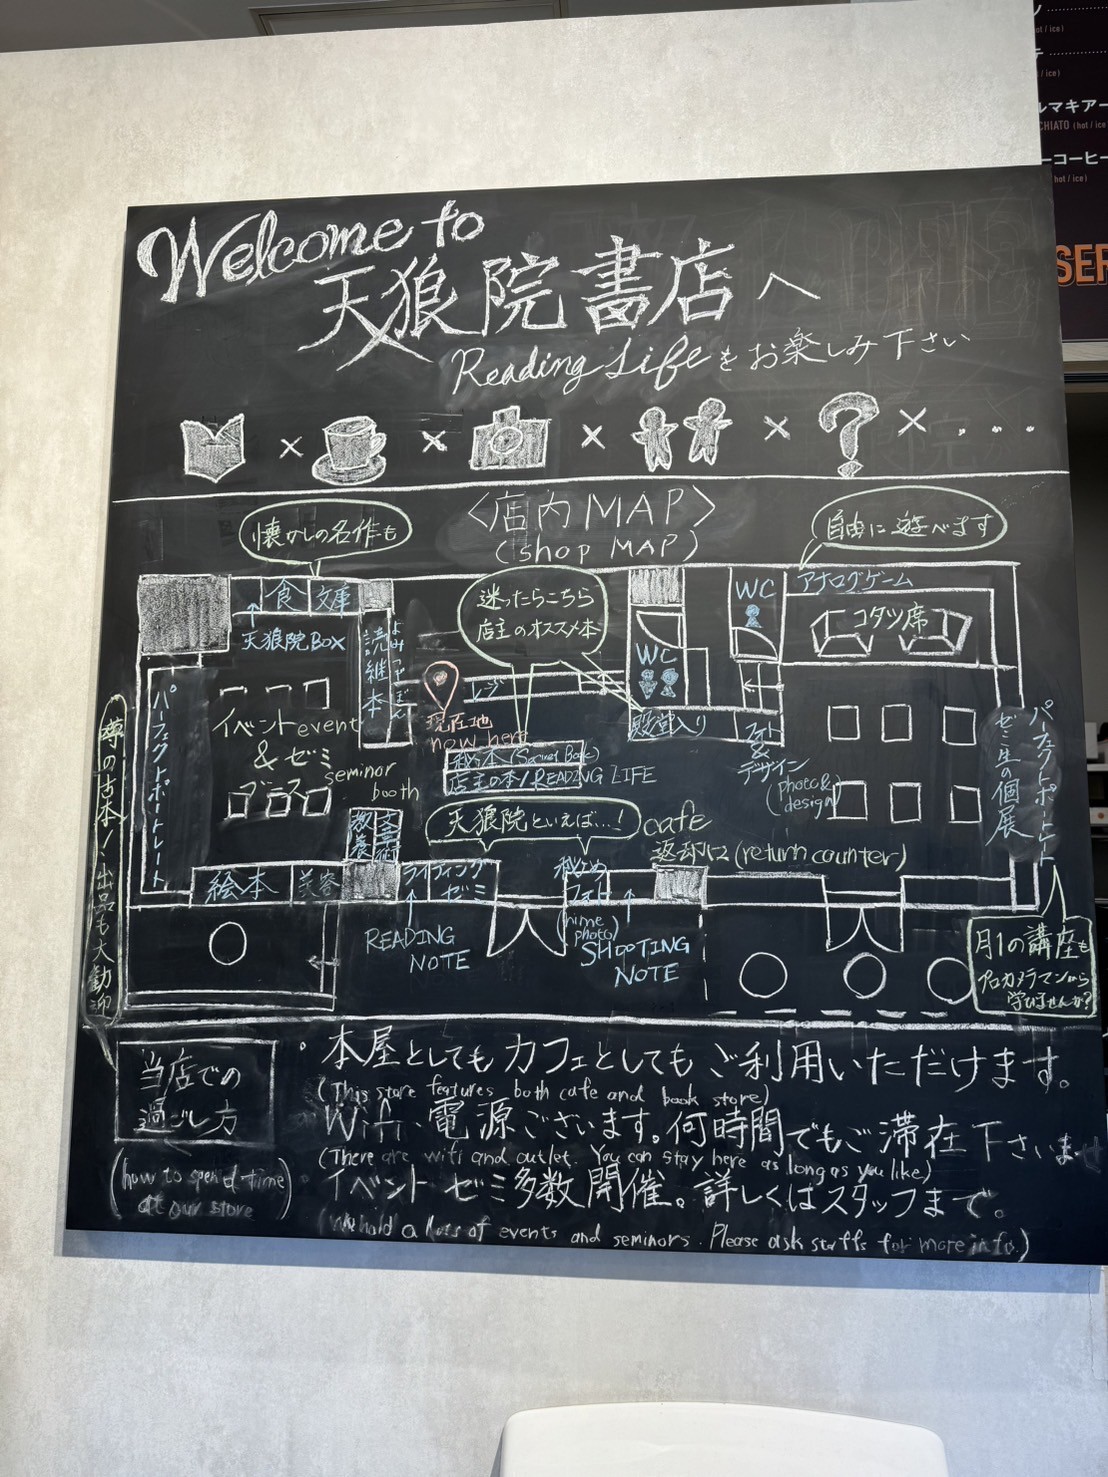 Welcome to
天狼院書店へ
Reading Lifeをお楽しみ下さい
× × × × × ...
〈店内MAP〉
(shop MAP)
懐かしの名作も
自由に遊べます
食 文庫
天狼院BOX
読継本
よみつぎぼん
迷ったらこちら
店主のオススメ本
WC
WC
アナログゲーム
コタツ席
レジ
現在地
now here
殿堂入り
フォト&デザイン
(photo&design)
秘本 (Secret Book)
店主の本/READING LIFE
パーフェクトポートレート
イベント event
&ゼミ
ブース seminor
booth
パーフェクトポートレート
ゼミ生の個展
噂の古本!出品も大歓迎
教養
文芸術
天狼院といえば…!
cafe
返却口 (return counter)
絵本
美容
ライティング
ゼミ
秘めフォト
(hime photo)
READING
NOTE
SHOOTING
NOTE
月1の講座も
プロカメラマンから
学びませんか?
当店での
過ごし方
(how to spend time
at our store)
・本屋としてもカフェとしてもご利用いただけます。
(This store features both cafe and book store)
・Wifi・電源ございます。何時間でもご滞在下さいませ
(There are wifi and outlet. You can stay here as long as you like)
・イベント ゼミ多数開催。詳しくはスタッフまで。
(We hold a lots of events and seminors. Please ask staffs for more info.)
ルマキアー
CHIATO (hot / ice)
ーコーヒー
hot / ice)
SER